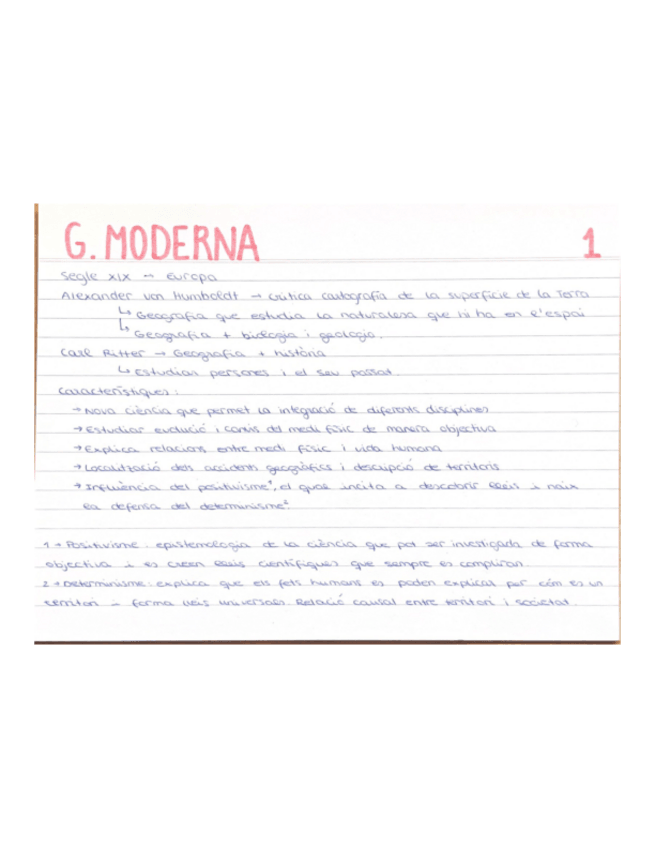 G. MODERNA 1
Segle XIX → Europa
Alexander von Humboldt → Crítica cartografía de la superfície de la Terra
↳ Geografia que estudia la naturalesa que hi ha en l'espai
↳ Geografia + biologia i geologia.
Carl Ritter → Geografia + història
↳ Estudiar persones i el seu passat.
Característiques:
→ Nova ciència que permet la integració de diferents disciplines
→ Estudiar evolució i canvis del medi físic de manera objectiva
→ Explica relacions entre medi físic i vida humana
→ Localització dels accidents geogràfics i descripció de territoris
→ Influència del positivisme¹, el qual incita a descobrir lleis i naix
la defensa del determinisme².
1 → Positivisme: epistemologia de la ciència que pot ser investigada de forma
objectiva i es creen lleis científiques que sempre es compliran.
2 → Determinisme: explica que els fets humans es poden explicar per cóm es un
territori - forma lleis universals. Relació causal entre territori i societat.